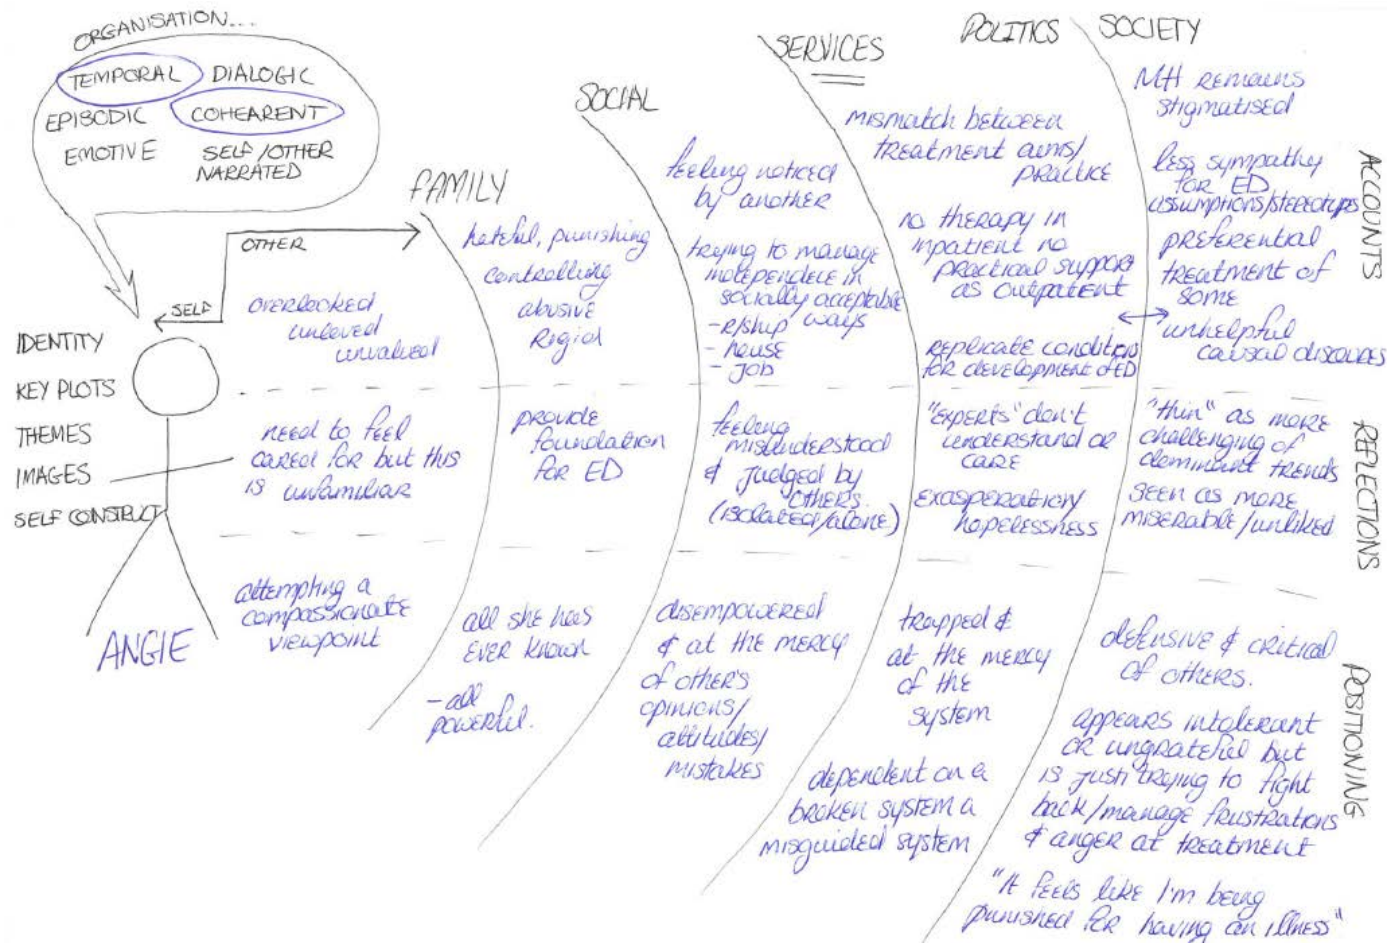 ORGANISATION...
TEMPORAL DIALOGIC
EPISODIC COHEARENT
EMOTIVE SELF/OTHER
NARRATED
OTHER
SELF
IDENTITY
KEY PLOTS
THEMES
IMAGES
SELF CONSTRUCT
ANGIE
overlooked
unloved
unvalued
need to feel
cared for but this
is unfamiliar
attempting a
compassionate
viewpoint
FAMILY
hateful, punishing
controlling
abusive
Rigid
provide
foundation
for ED
all she has
ever known
- all
powerful.
SOCIAL
feeling noticed
by another
trying to manage
independence in
socially acceptable
ways
- r/ship
- house
- job
feeling
misunderstood
& judged by
others.
(isolated/alone)
disempowered
& at the mercy
of other's
opinions/
attitudes/
mistakes
SERVICES
POLITICS
mismatch between
treatment aims/
practice
no therapy in
inpatient no
practical support
as outpatient
replicate condition
for development of ED
"experts" don't
understand or
care
exasperation/
hopelessness
trapped &
at the mercy
of the
system
dependent on a
broken system a
misguided system
SOCIETY
MH remains
stigmatised
less sympathy
for ED
assumptions/stereotypes
preferential
treatment of
some
unhelpful
causal discourses
"thin" as more
challenging of
dominant trends
seen as more
miserable/unliked
defensive & critical
of others.
appears intolerant
or ungrateful but
is just trying to fight
back/manage frustrations
& anger at treatment
"It feels like I'm being
punished for having an illness"
ACCOUNTS
REFLECTIONS
POSITIONING